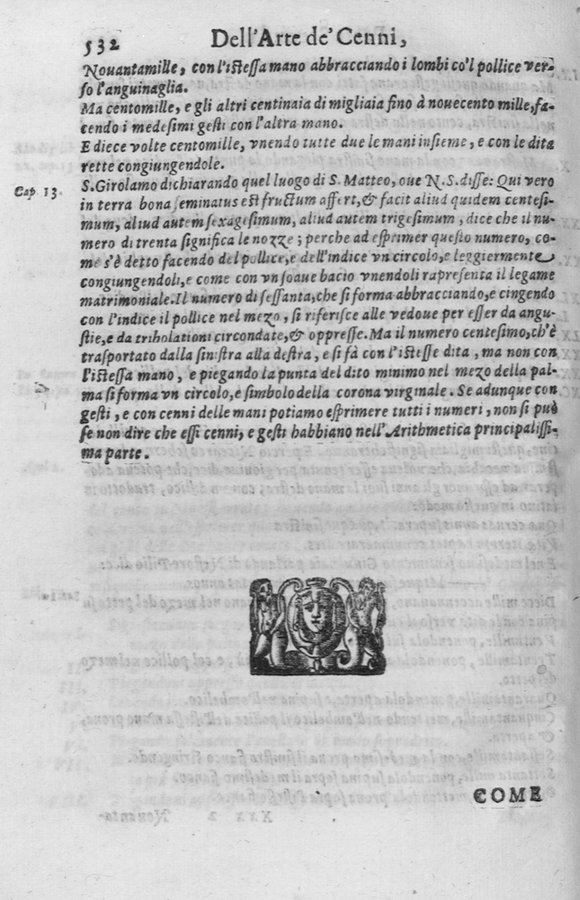 532 Dell'Arte de' Cenni,
Nouantamille, con l'istessa mano abbracciando i lombi co'l pollice ver-
so l'anguinaglia.
Ma centomille, e gli altri centinaia di migliaia fino à nouecento mille, fa-
cendo i medesimi gesti con l'altra mano.
E diece volte centomille, vnendo tutte due le mani insieme, e con le dita
rette congiungendole.
Cap. 13. S. Girolamo dichiarando quel luogo di S. Matteo, oue N. S. disse: Qui vero
in terra bona seminatus est fructum affert, & facit aliud quidem centesi-
mum, aliud autem sexagesimum, aliud autem trigesimum, dice che il nu-
mero di trenta significa le nozze; perche ad esprimer questo numero, co-
me s'è detto facendo del pollice, e dell'indice vn circolo, e leggiermente
congiungendoli, e come con vn soaue bacio vnendoli rapresenta il legame
matrimoniale. Il numero di sessanta, che si forma abbracciando, e cingendo
con l'indice il pollice nel mezo, si riferisce alle vedoue per esser da angu-
stie, e da tribolationi circondate, & oppresse. Ma il numero centesimo, ch'è
trasportato dalla sinistra alla destra, e si fà con l'istesse dita, ma non con
l'istessa mano, e piegando la punta del dito minimo nel mezo della pal-
ma si forma vn circolo, e simbolo della corona virginale. Se adunque con
gesti, e con cenni delle mani potiamo esprimere tutti i numeri, non si può
se non dire che essi cenni, e gesti habbiano nell'Arithmetica principalissi-
ma parte.
COME